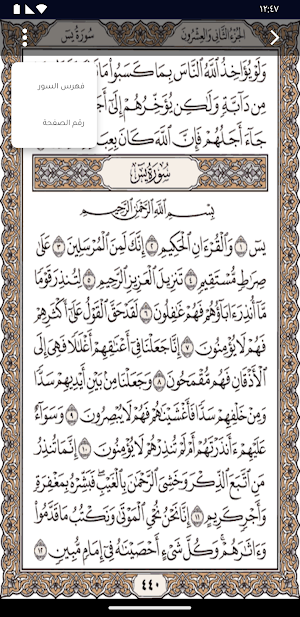 ١٢:٤٧
الجزء الثاني والعشرون
سورة يس
فهرس السور
رقم الصفحة
وَلَوْ يُؤَاخِذُ ٱللَّهُ ٱلنَّاسَ بِمَا كَسَبُوا۟ مَا
مِن دَآبَّةٍ وَلَٰكِن يُؤَخِّرُهُمْ إِلَىٰٓ
جَآءَ أَجَلُهُمْ فَإِنَّ ٱللَّهَ كَانَ بِعِبَا
سُورَةُ يسٓ
بِسْمِ ٱللَّهِ ٱلرَّحْمَٰنِ ٱلرَّحِيمِ
يسٓ ١ وَٱلْقُرْءَانِ ٱلْحَكِيمِ ٢ إِنَّكَ لَمِنَ ٱلْمُرْسَلِينَ ٣ عَلَىٰ
صِرَٰطٍ مُّسْتَقِيمٍ ٤ تَنزِيلَ ٱلْعَزِيزِ ٱلرَّحِيمِ ٥ لِتُنذِرَ قَوْمًا
مَّآ أُنذِرَ ءَابَآؤُهُمْ فَهُمْ غَٰفِلُونَ ٦ لَقَدْ حَقَّ ٱلْقَوْلُ عَلَىٰٓ أَكْثَرِهِمْ
فَهُمْ لَا يُؤْمِنُونَ ٧ إِنَّا جَعَلْنَا فِىٓ أَعْنَٰقِهِمْ أَغْلَٰلًا فَهِىَ إِلَى
ٱلْأَذْقَانِ فَهُم مُّقْمَحُونَ ٨ وَجَعَلْنَا مِنۢ بَيْنِ أَيْدِيهِمْ سَدًّا
وَمِنْ خَلْفِهِمْ سَدًّا فَأَغْشَيْنَٰهُمْ فَهُمْ لَا يُبْصِرُونَ ٩ وَسَوَآءٌ
عَلَيْهِمْ ءَأَنذَرْتَهُمْ أَمْ لَمْ تُنذِرْهُمْ لَا يُؤْمِنُونَ ١٠ إِنَّمَا تُنذِرُ
مَنِ ٱتَّبَعَ ٱلذِّكْرَ وَخَشِىَ ٱلرَّحْمَٰنَ بِٱلْغَيْبِ فَبَشِّرْهُ بِمَغْفِرَةٍ
وَأَجْرٍ كَرِيمٍ ١١ إِنَّا نَحْنُ نُحْىِ ٱلْمَوْتَىٰ وَنَكْتُبُ مَا قَدَّمُوا۟
وَءَاثَٰرَهُمْ وَكُلَّ شَىْءٍ أَحْصَيْنَٰهُ فِىٓ إِمَامٍ مُّبِينٍ ١٢
٤٤٠